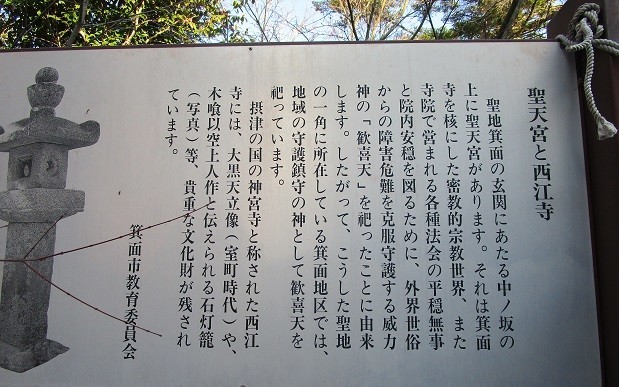 聖天宮と西江寺
聖地箕面の玄関にあたる中ノ坂の
上に聖天宮があります。それは箕面
寺を核にした密教的宗教世界、また
寺院で営まれる各種法会の平穏無事
と院内安穏を図るために、外界世俗
からの障害危難を克服守護する威力
神の「歓喜天」を祀ったことに由来
します。したがって、こうした聖地
の一角に所在している箕面地区では、
地域の守護鎮守の神として歓喜天を
祀っています。
摂津の国の神宮寺と称された西江
寺には、大黒天立像（室町時代）や、
木喰以空上人作と伝えられる石灯籠
（写真）等、貴重な文化財が残され
ています。
箕面市教育委員会